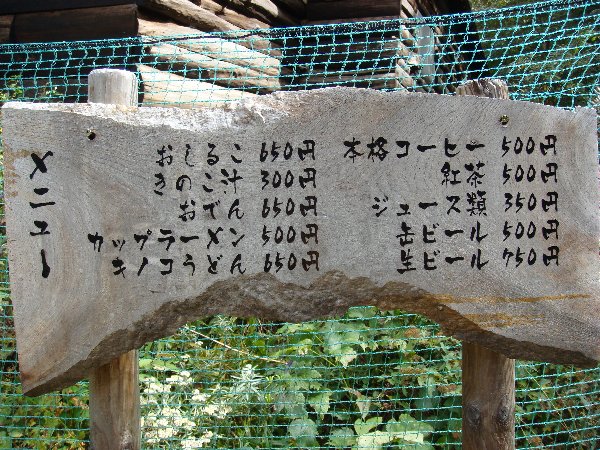 メニュー
おしるこ 650円
きのこ汁 300円
おでん 650円
カップラーメン 500円
キノコうどん 650円
本格コーヒー 500円
紅茶 500円
ジュース類 350円
缶ビール 500円
生ビール 750円